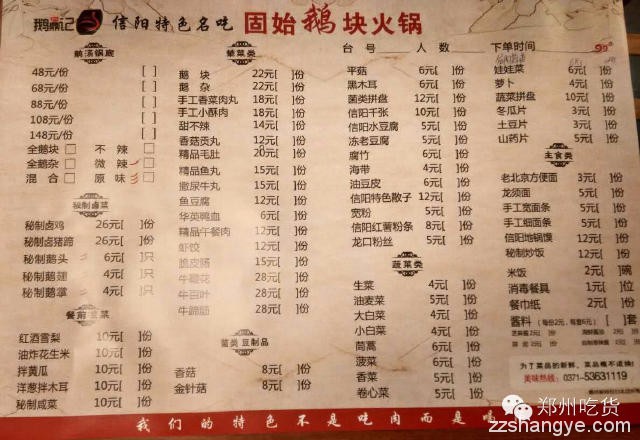 鹅赢记
信阳特色名吃 固始鹅块火锅
台号 人数 下单时间
99#
鹅汤锅底
48元/份 [ ]
68元/份 [ ]
88元/份 [ ]
108元/份 [ ]
148元/份 [ ]
全鹅块 □ 不辣 □
全鹅杂 □ 微辣
混合 □ 原味
秘制卤菜
秘制卤鸡 26元[ ]份
秘制卤猪蹄 26元[ ]份
秘制鹅头 6元[ ]只
秘制鹅翅 4元[ ]只
秘制鹅掌 4元[ ]只
餐前凉菜
红酒雪梨 10元[ ]份
油炸花生米 10元[ ]份
拌黄瓜 10元[ ]份
洋葱拌木耳 10元[ ]份
秘制咸菜 10元[ ]份
荤菜类
鹅块 22元[ ]份
鹅杂 22元[ ]份
手工香菜肉丸 18元[ ]份
手工小酥肉 18元[ ]份
甜不辣 14元[ ]份
香菇贡丸 12元[ ]份
精品毛肚 20元[ ]份
精品鱼丸 15元[ ]份
撒尿牛丸 15元[ ]份
鱼豆腐 12元[ ]份
华英鸭血 6元[ ]份
精品午餐肉 12元[ ]份
虾饺 12元[ ]份
脆皮肠 15元[ ]份
牛鞭花 28元[ ]份
牛百叶 28元[ ]份
牛蹄筋 28元[ ]份
菌类 豆制品
香菇 8元[ ]份
金针菇 8元[ ]份
平菇 6元[ ]份
黑木耳 8元[ ]份
菌类拼盘 12元[ ]份
信阳千张 10元[ ]份
信阳水豆腐 5元[ ]份
冻老豆腐 5元[ ]份
腐竹 6元[ ]份
海带 4元[ ]份
油豆皮 6元[ ]份
信阳特色散子 12元[ ]份
宽粉 5元[ ]份
信阳红薯粉条 8元[ ]份
龙口粉丝 5元[ ]份
蔬菜类
生菜 4元[ ]份
油麦菜 5元[ ]份
大白菜 4元[ ]份
小白菜 4元[ ]份
茼蒿 6元[ ]份
菠菜 6元[ ]份
香菜 5元[ ]份
卷心菜 5元[ ]份
娃娃菜 6元[ ]份
萝卜 4元[ ]份
蔬菜拼盘 10元[ ]份
冬瓜片 3元[ ]份
土豆片 3元[ ]份
山药片 5元[ ]份
主食类
老北京方便面 3元[ ]份
龙须面 5元[ ]份
手工宽面条 5元[ ]份
手工细面条 5元[ ]份
信阳地锅馍 12元[ ]份
秘制炒饭 12元[ ]份
米饭 2元[ ]碗
消毒餐具 1元[ ]位
餐巾纸 2元[ ]份
酱料 [ ]套
为了菜品的新鲜，菜品概不退换！
美味热线：0371-53631119
我们的特色不是吃肉而是喝
郑州吃货
zzshangye.com